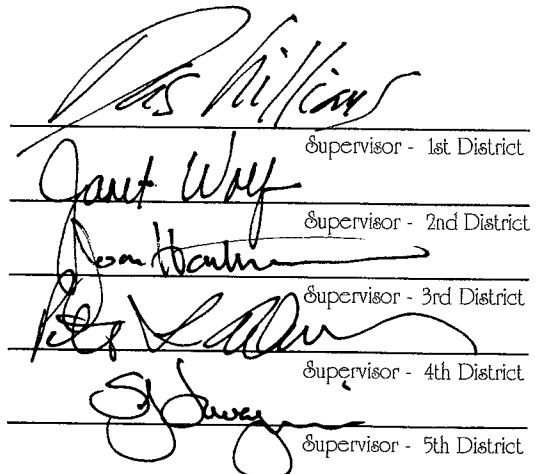 Das Williams
Supervisor - 1st District
Janet Wolf
Supervisor - 2nd District
Joan Hartmann
Supervisor - 3rd District
Peter
Supervisor - 4th District
Supervisor - 5th District